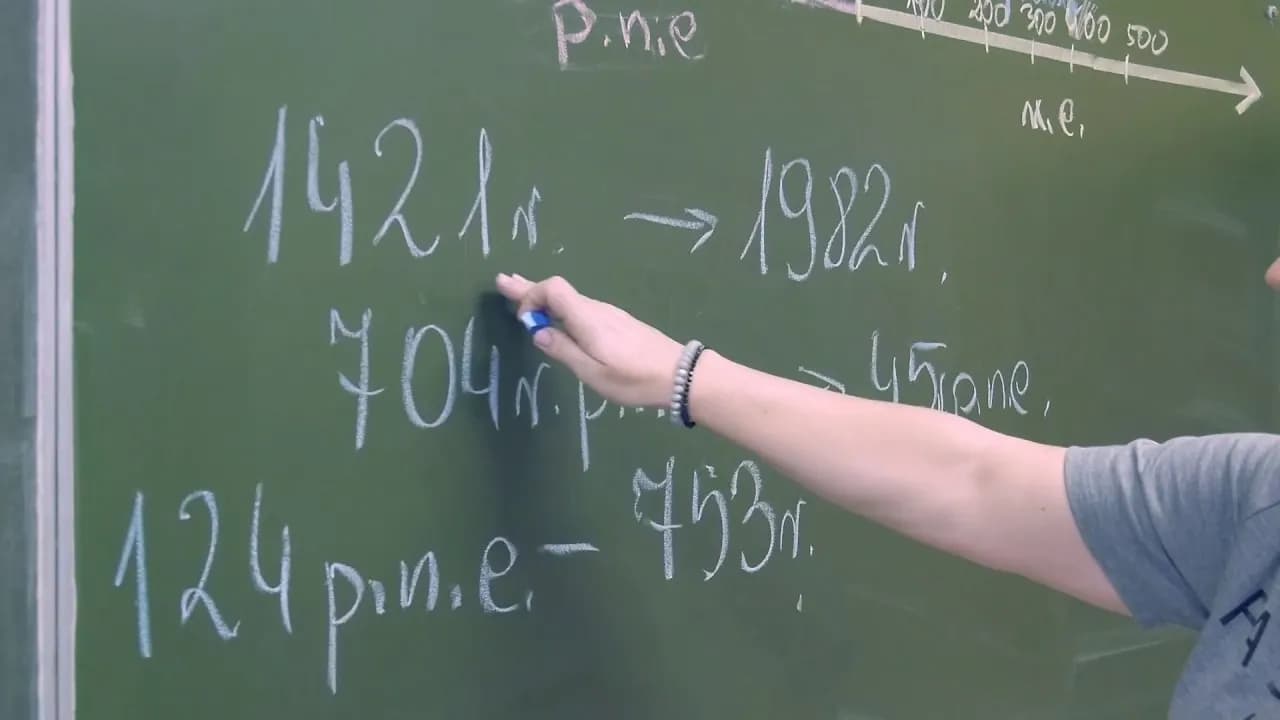 p.n.e
100 200 300 400 500
n.e.
1421 r. → 1982 r.
704 r. p.n. → 45 p.n.e.
124 p.n.e. – 753 r.